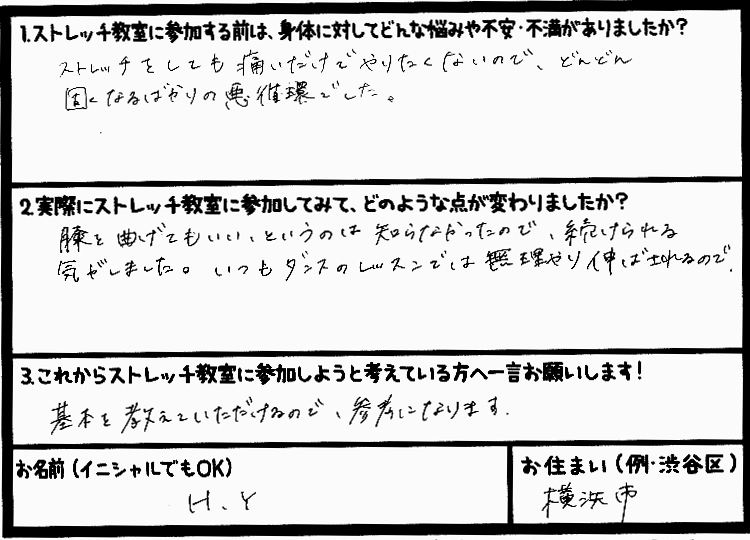 1.ストレッチ教室に参加する前は、身体に対してどんな悩みや不安・不満がありましたか?
ストレッチをしても痛いだけでやりたくないので、どんどん
固くなるばかりの悪循環でした。
2.実際にストレッチ教室に参加してみて、どのような点が変わりましたか?
膝を曲げてもいい、というのは知らなかったので、続けられる
気がしました。いつもダンスのレッスンでは無理やり伸ばされるので.
3.これからストレッチ教室に参加しようと考えている方へ一言お願いします!
基本を教えていただけるので、参考になります.
お名前(イニシャルでもOK)
H.Y
お住まい(例・渋谷区)
横浜市